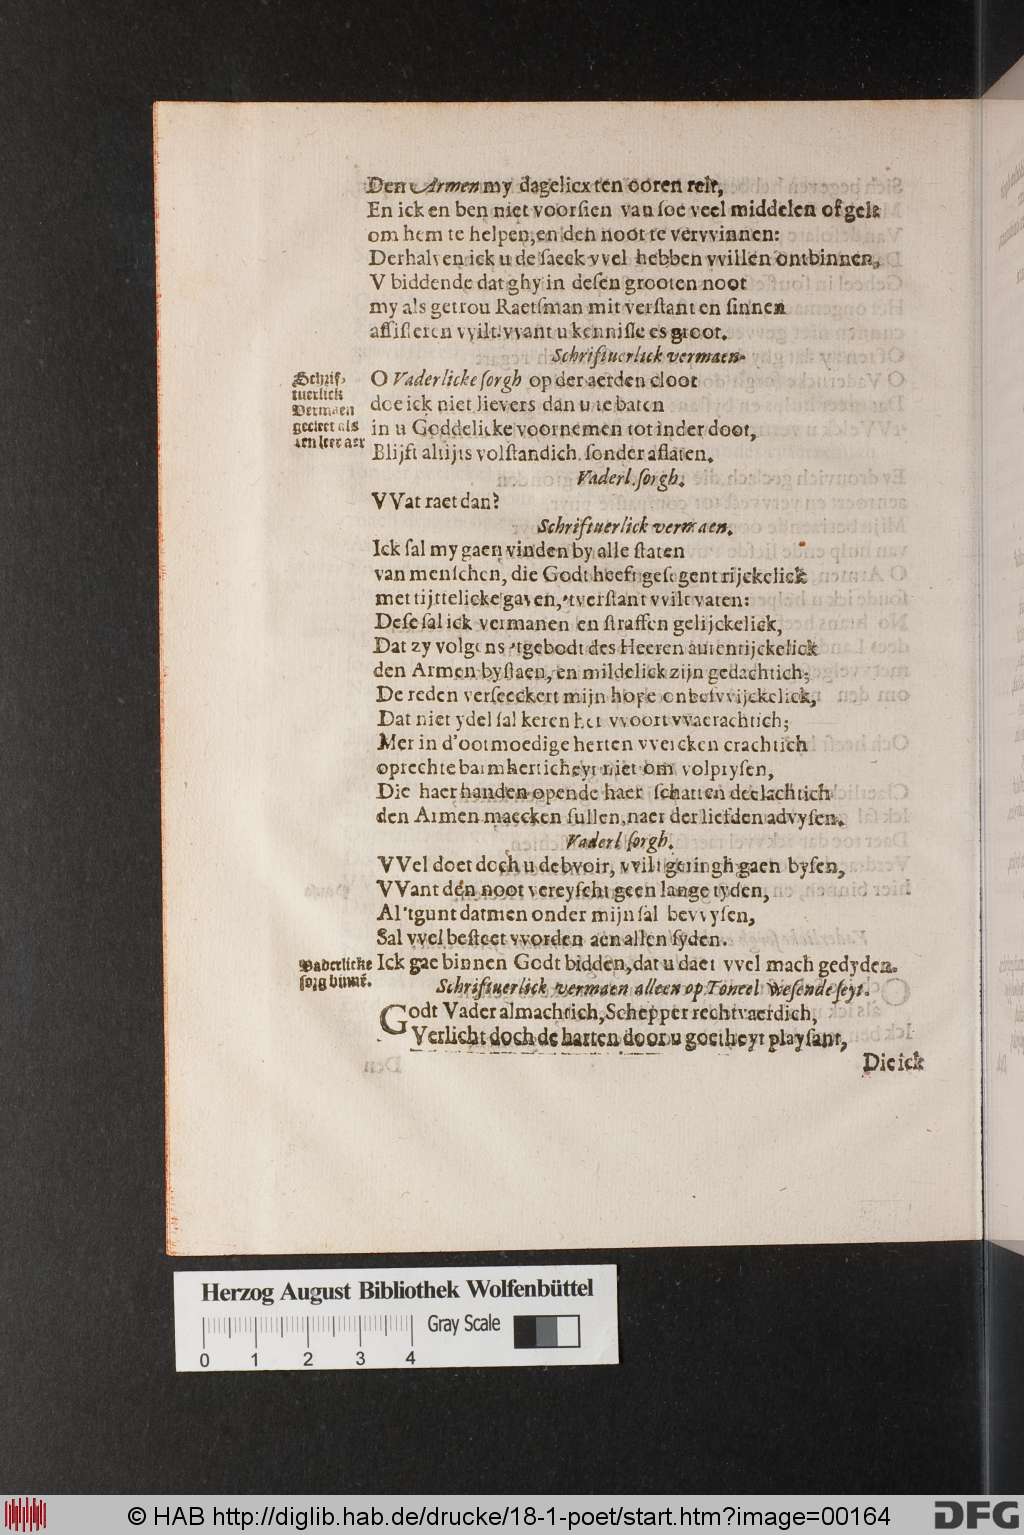 Den Armen my dagelicx ten ooren relt,
En ick en ben niet voorsien van soe veel middelen of gelt
om hem te helpen, en den noot te vervvinnen:
Derhalven ick u de saeck vvel hebben vvillen ontbinnen,
V biddende dat ghy in desen grooten noot
my als getrou Raetsman mit verstant en sinnen
assisteren vvilt: vvant u kennisse es groot.
Schriftuerlick vermaen.
O Vaderlicke sorgh op der aerden cloot
doe ick niet lievers dan u te baten
in u Goddelicke voornemen tot inder doot,
Blijft altijts volstandich, sonder aflaten.
Schrif-
tuerlick
Vermaen
gecleet als
een leeraer
Vaderl. sorgh.
VVat raet dan?
Schriftuerlick vermaen.
Ick sal my gaen vinden by alle staten
van menschen, die Godt heeft gesegent rijckelick
met tijttelicke gaven, 'tverstant vvilt vaten:
Dese sal ick vermanen en straffen gelijckelick,
Dat zy volgens 'tgebodt des Heeren autentijckelick
den Armen bystaen, en mildelick zijn gedachtich;
De reden verseeckert mijn hope onbesvvijckelick,
Dat niet ydel sal keren het vvoort vvaerachtich;
Mer in d'ootmoedige herten vvercken crachtich
oprechte barmherticheyt niet om volprysen,
Die haer handen opende haer schatten deelachtich
den Armen maecken sullen, naer der liefden advysen.
Vaderl sorgh.
VVel doet doch u debvoir, vvilt geringh gaen bysen,
VVant den noot vereyscht geen lange tyden,
Al 'tgunt datmen onder mijn sal bevvysen,
Sal vvel besteet vvorden aen allen syden.
Ick gae binnen Godt bidden, dat u daet vvel mach gedyden.
Vaderlicke
sorg binnē.
Schriftuerlick vermaen alleen op Toneel wesende seyt.
Godt Vader almachtich, Schepper rechtvaerdich,
Verlicht doch de harten door u goetheyt playsant,
Die ick
Herzog August Bibliothek Wolfenbüttel
Gray Scale
0 1 2 3 4
© HAB http://diglib.hab.de/drucke/18-1-poet/start.htm?image=00164
DFG